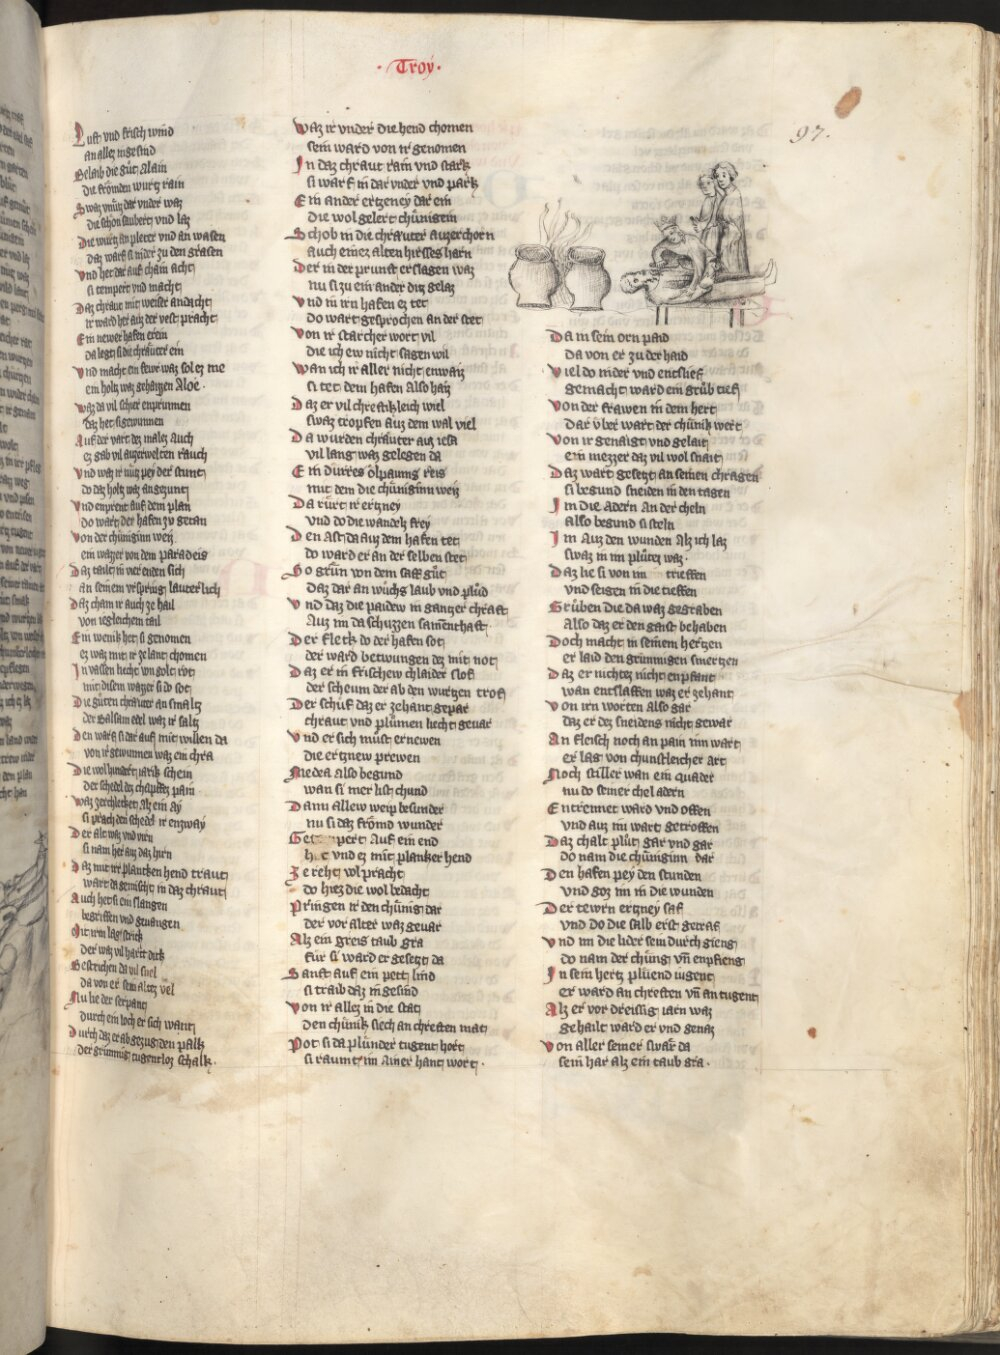 · Troy ·
97.
Luft vnd frisch wind
an allez ingesind
Belaib die gůt alain
die frömden wurtz rain
Swaz vnnütz dar vnder waz
die schon säubert vnd laz
Die wurtz an pleter vnd an wasen
daz warf si nider zu den grasen
Vnd het dar auf chain acht
si tempert vnd macht
Daz chraut mit weiser andacht
ir ward her auz der vest pracht
Ein newer hafen erein
da legt si die chräuter ein
Vnd macht ein fewr waz sol ez me
ein holtz waz gehaizzen Aloe ·
waz da vil schier enprunnen
daz het si gewunnen
Auf der vart dez males auch
ez gab vil auzerwelten rauch
Vnd waz ir nütz pey der stunt
do daz holtz waz angezunt
Vnd enprent auf dem plan
do wart der hafen zu getan
Von der chüniginn weiz
ein wazzer von dem paradeis
Daz tailt in vier enden sich
an seinem vrspring lauterlich
Daz cham ir auch ze hail
von iegleichem tail
Ein wenik het si genomen
ez waz mit ir ze lant chomen
In vassen liecht von golt röt
mit disem wazzer si do sot
Die gůten chräuter an smaltz
der Balsam edel waz ir saltz
Den warf si dar auf mit willen da
von ir gewunnen waz ein chra
Die wol hundert jarik schein
der schedel dez chopffez pain
Waz zerchlecket alz ein ay
si prach den schedel ir enzway
Der alt waz vnd virn
si nam her auz daz hirn
Daz mit ir plankchen hend traut
wart da gemischt in daz chraut
Auch het si ein slangen
begriffen vnd gevangen
Mit irm lag strik
der waz vil hart dik
Bestrichen da vil snel
da von er sein altez vel
Nu lie der serpant
durch ein loch er sich want
Durch daz er ab gezug den palk
der grimmig tugentloz schalk ·
Waz ir vnder die hend chomen
sein ward von ir genomen
In daz chraut rain vnd stark
si warf in dar vnder vnd park
Ein ander ertzney dar ein
die wol gelert chünigein
Schob in die chräuter auzerchorn
auch einez alten hirsses harn
Der in der prunst erslagen waz
nu si zu ein ander diz gelaz
Vnd in irn hafen ez tet
do wart gesprochen an der stet
Von ir starcher wort vil
die ich ew nicht sagen wil
Wan ich ir aller nicht enwaiz
si tet dem hafen also haiz
Daz er vil chreftikleich wiel
swaz tropfen auz dem wal viel
Da wurden chräuter auz iesa
vil lang waz gelegen da
Ein dürres ölpaums reis
mit dem die chüniginn weiz
Da rürt ir ertzney
vnd do die wandels frey
Den ast da auz dem hafen tet
do ward er an der selben stet
So grün von dem saff gůt
daz dar an wůchs laub vnd plůd
Vnd daz die paidew in gantzer chraft
auz im da schuzzen samenthaft
Der flekk do der hafen sot
der ward betwungen dez mit not
Daz er in frischew chlaider slof
der scheum der ab den wurtzen trof
Der schuf daz er zehant gepar
chraut vnd plümen liecht gevar
Vnd er sich můst ernewen
die ertznew prewen
Medea also begund
wan si mer list chund
Dann allew weip besunder
nu si daz frömd wunder
Auf ein end
vnd ez mit planker hend
Ze reht wol pracht
do hiez die wol bedacht
Pringen ir den chünig dar
der vor alter waz gevar
Alz ein greis taub gra
für si ward er gesetzt da
Sanft auf ein pett lind
si traib daz ingesind
Von ir allez in die stat
den chünik siech an chreften mat
Pot si da plünder tugent hort
si raumt im ainer hant wort ·
Da in sein orn paid
da von er zu der haid
Viel do nider vnd entslief
gemacht ward ein grůb tief
Von der frawen in dem hert
dar vber wart der chünik wert
Von ir genaigt vnd gelait
ein mezzer daz vil wol snait
Daz wart gesetzt an seinen chragen
si begund sneiden in den tagen
Im die adern an der cheln
also begund si steln
Im auz den wunden alz ich laz
swaz in im plůtez waz
Daz lie si von im trieffen
vnd seigen in die tieffen
Grůben die da waz gegraben
also daz er den gaist behaben
Doch macht in seinem hertzen
er laid den grimmigen smertzen
Daz er nichtez nicht enpfant
wan entslaffen waz er zehant
Von irn worten also gar
daz er dez sneidens nicht gewar
An fleisch noch an pain nim wart
er lag von chunstleicher art
Noch stiller wan ein quader
nu do seiner chel adern
Entrennet ward vnd offen
vnd auz im wart getroffen
Daz chalt plůt gar vnd gar
do nam die chüniginn dar
Den hafen pey den stunden
vnd goz im in die wunden
Der tewrn ertzney saf
vnd do die salb erst getraf
Vnd im die lider sein durch gieng
do nam der chünig vn̄ enpfieng
In sein hertz plüend iugent
er ward an chreften vn̄ an tugent
Alz er vor dreissig iarn waz
gehailt ward er vnd genaz
Von aller seiner swär da
sein har alz ein taub gra ·